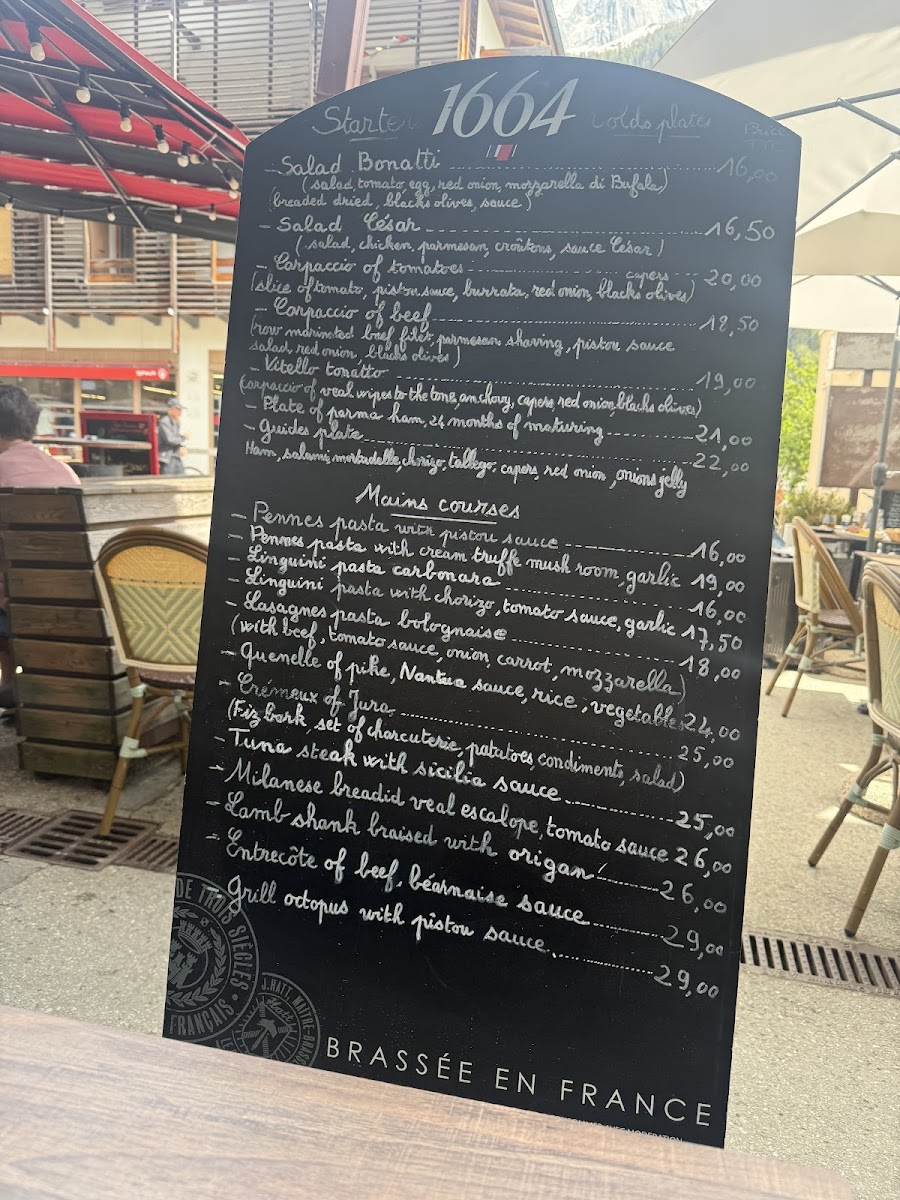 1664
Starte colds plates Price TTC
- Salad Bonatti 16,00
( salad, tomato, egg, red onion, mozzarella di Bufala)
(breaded dried, blacks olives, sauce )
- Salad César 16,50
( salad, chicken, parmesan, croûtons, sauce César )
- Carpaccio of tomatoes 20,00
capers
(slice of tomato, pistou sauce, burrata, red onion, blacks olives)
- Carpaccio of beef 18,50
(row marinated beef filet, parmesan shaving, pistou sauce
salad, red onion, blacks olives )
- Vitello tonatto 19,00
(carpaccio of veal wipes to the tone, anchovy, capers, red onion, blacks olives)
- Plate of parma ham, 24 months of maturing 21,00
- Guides plate 22,00
Ham, salami, mortadelle, chorizo, tallego, capers, red onion, onions jelly
Mains courses
- Pennes pasta with pistou sauce 16,00
- Pennes pasta with cream truffe mush room, garlic 19,00
- Linguini pasta carbonara 16,00
- Linguini pasta with chorizo, tomato sauce, garlic 17,50
- Lasagnes pasta bolognaise 18,00
(with beef, tomato sauce, onion, carrot, mozzarella)
- Quenelle of pike, Nantua sauce, rice, vegetables 24,00
- Crémeux of Jura 25,00
(Fiz bark, set of charcuterie, patatoes condiments, salad)
- Tuna steak with sicilia sauce 25,00
- Milanese breadid veal escalope, tomato sauce 26,00
- Lamb shank braised with origan 26,00
- Entrecôte of beef, béarnaise sauce 29,00
- Grill octopus with pistou sauce 29,00
DE TROIS SIÈCLES
FRANÇAIS
J.HATT, MAÎTRE-BRASS
BRASSÉE EN FRANCE
SPAR